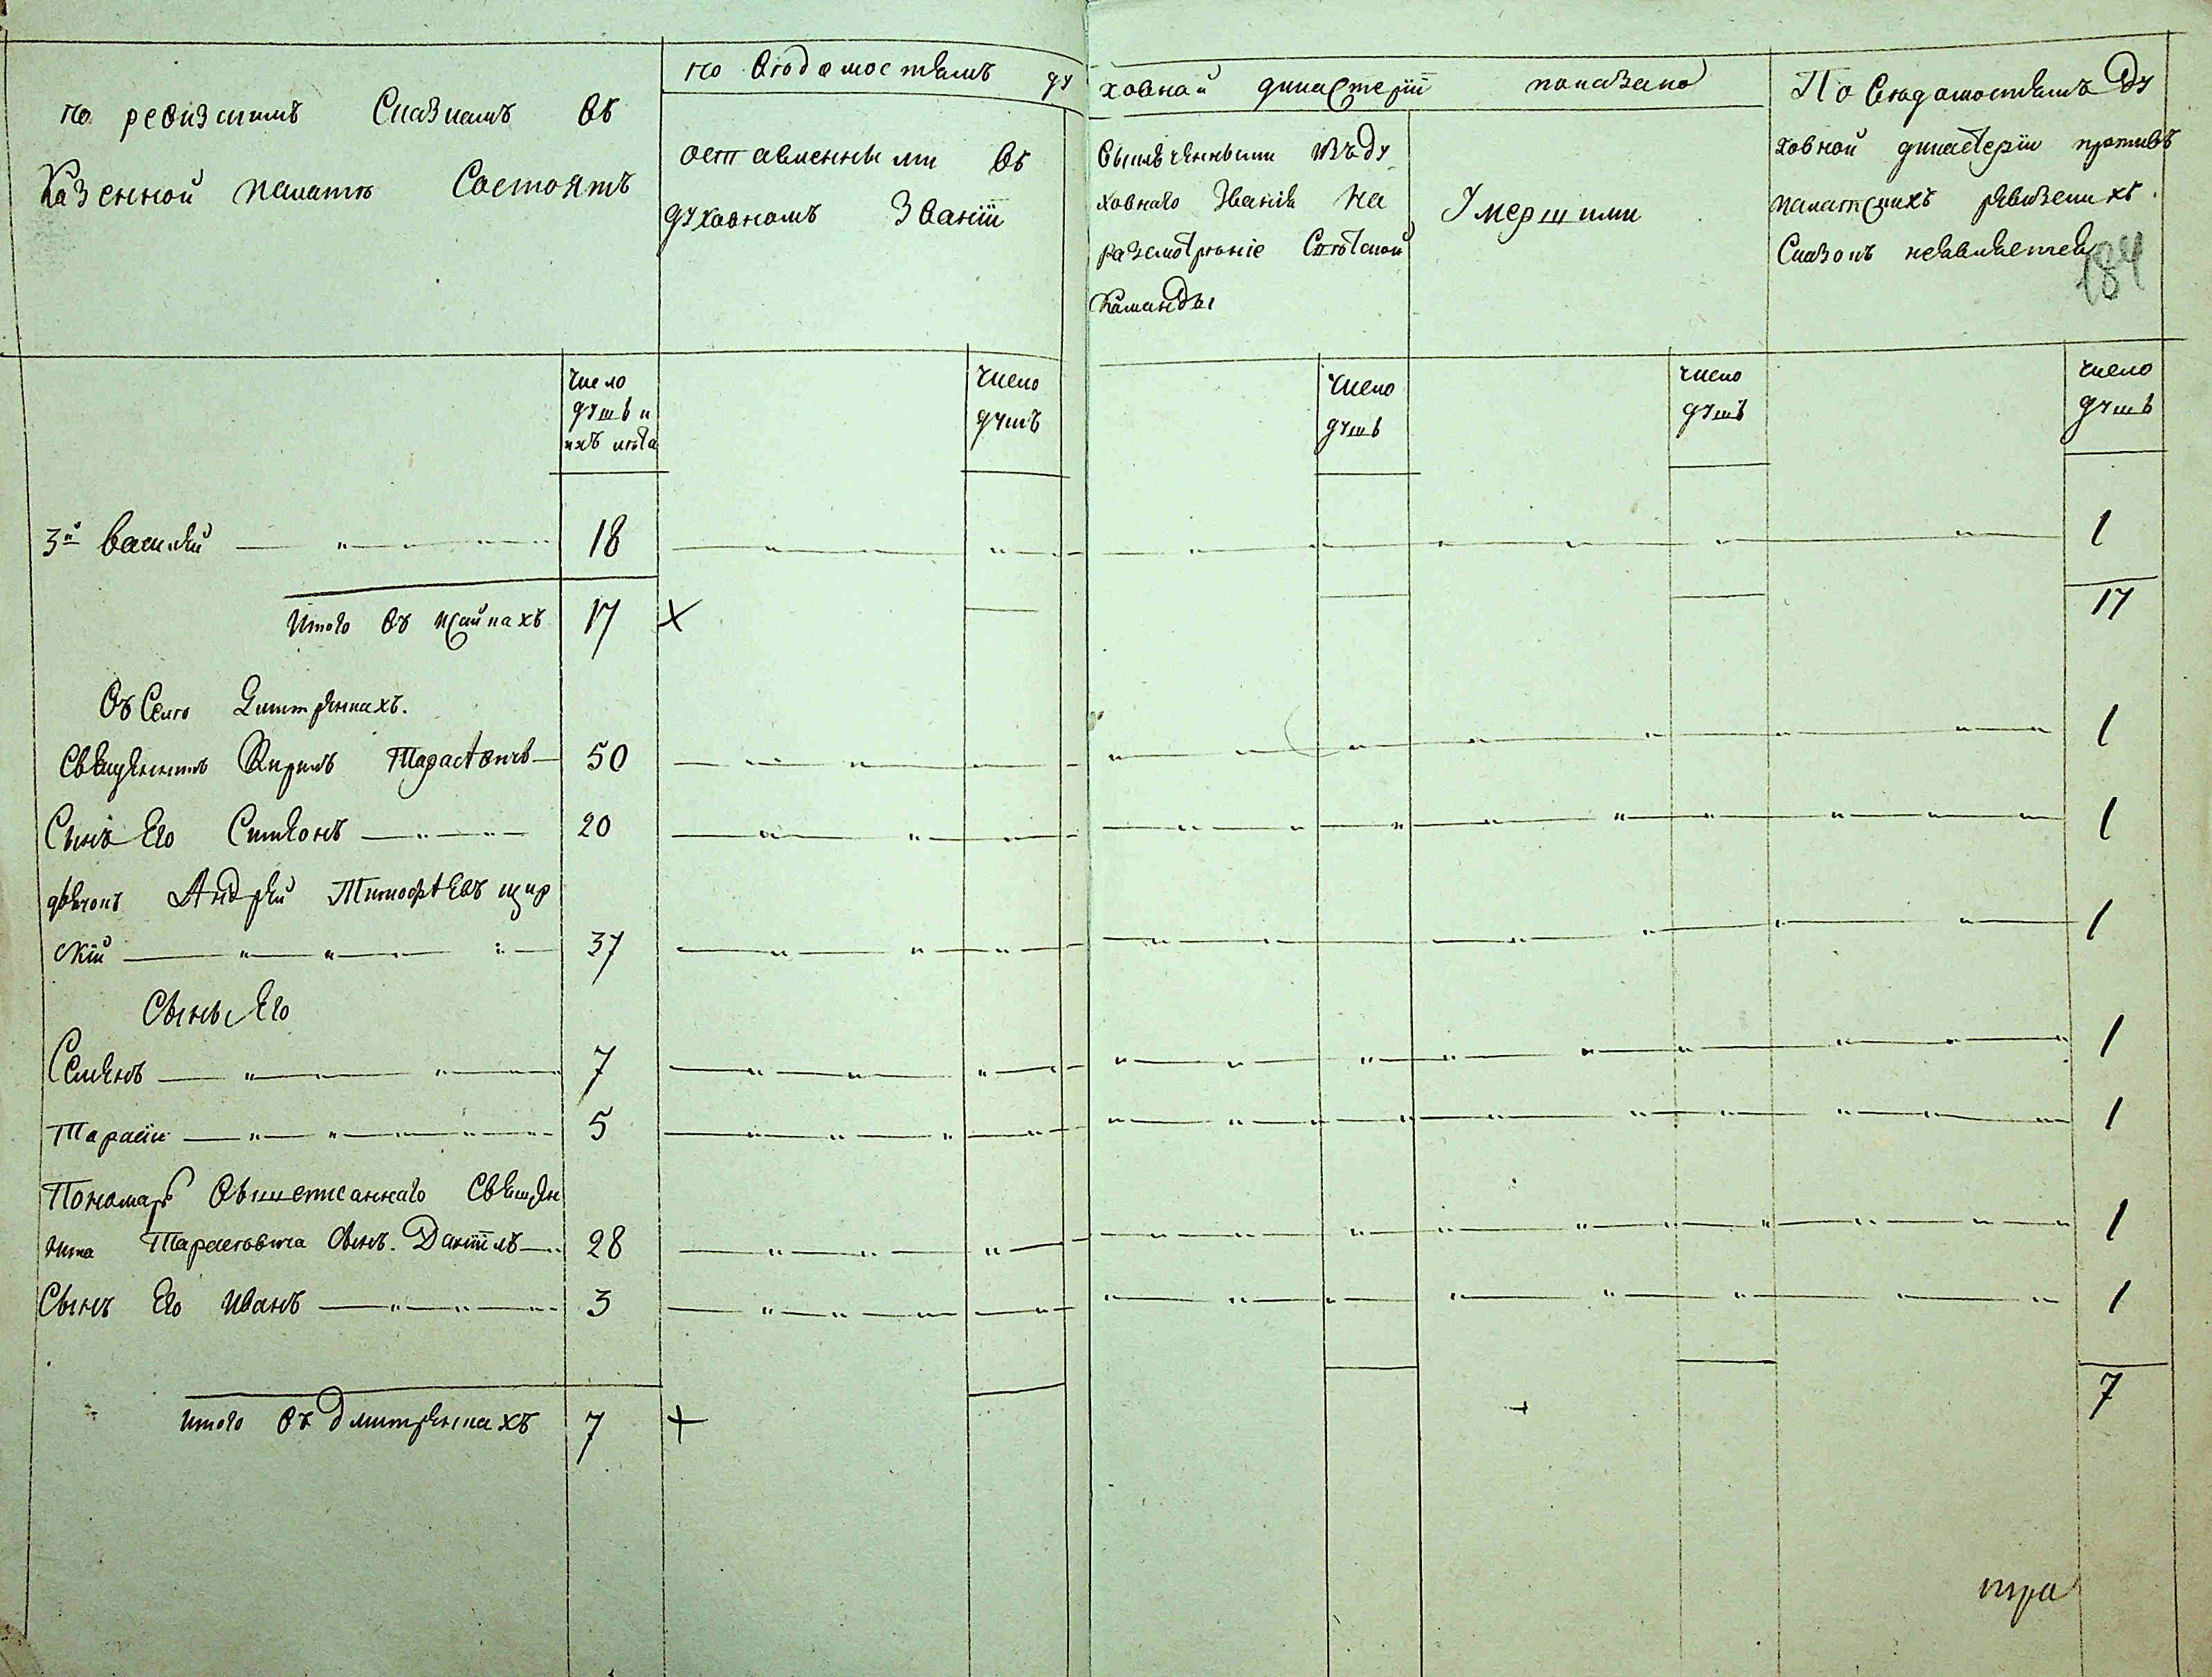 по ревизскимъ Сказкамъ въ
Казенной палатѣ Состоятъ
по вѣдомостямъ ду
ховной дикастерїи показано
оставленными въ
духовномъ Званїи
Выключенными изъ ду
ховнаго Званїя на
разсмотрѣнїе Свѣтской
Команды
Умершими
По вѣдомостямъ Ду
ховной дикастерїи противъ
палатскихъ ревизскихъ
Сказокъ неявляется
184
число
душъ и
ихъ лѣта
число
душъ
число
душъ
число
душъ
число
душъ
3й Василїй 18 1
Итого въ 17 × 17
Въ Селѣ Дмитренкахъ.
Священникъ Кирилъ Тарасѣвичъ 50 1
Сынъ Его Симеонъ 20 1
дьячокъ Андрей Тимофѣевъ щир
скїй 37 1
Сыны Его
Семенъ 7 1
Тарасїи 5 1
Пономарь Вышеписаннаго Священ
ника Тарасѣовича Сынъ Данїилъ 28 1
Сынъ Его Иванъ 3 1
Итого въ Дмитренкахъ 7 + 7